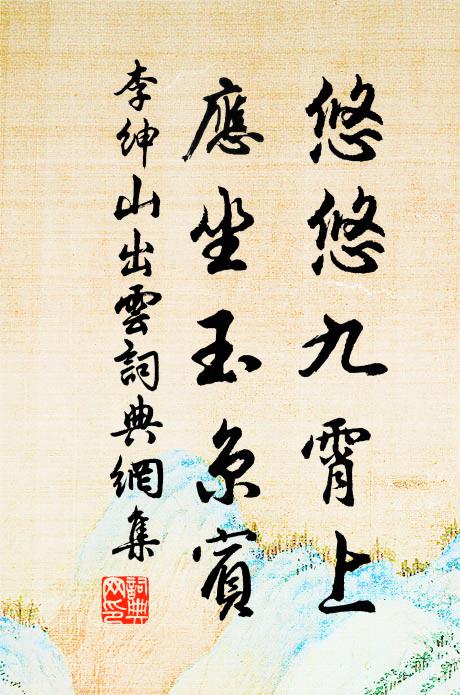 悠悠九霄上
應坐玉京賓
李紳山出雲詞典網集
詞典网印